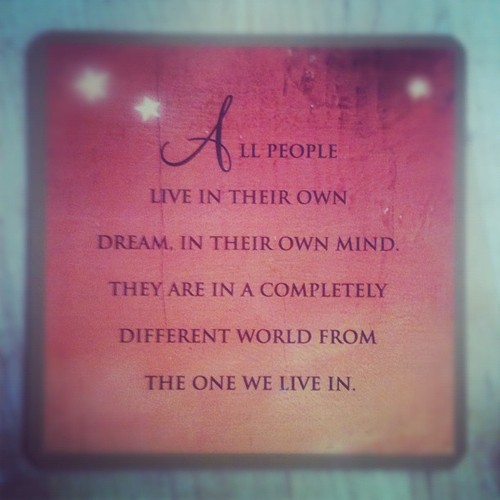 ALL PEOPLE
LIVE IN THEIR OWN
DREAM, IN THEIR OWN MIND.
THEY ARE IN A COMPLETELY
DIFFERENT WORLD FROM
THE ONE WE LIVE IN.